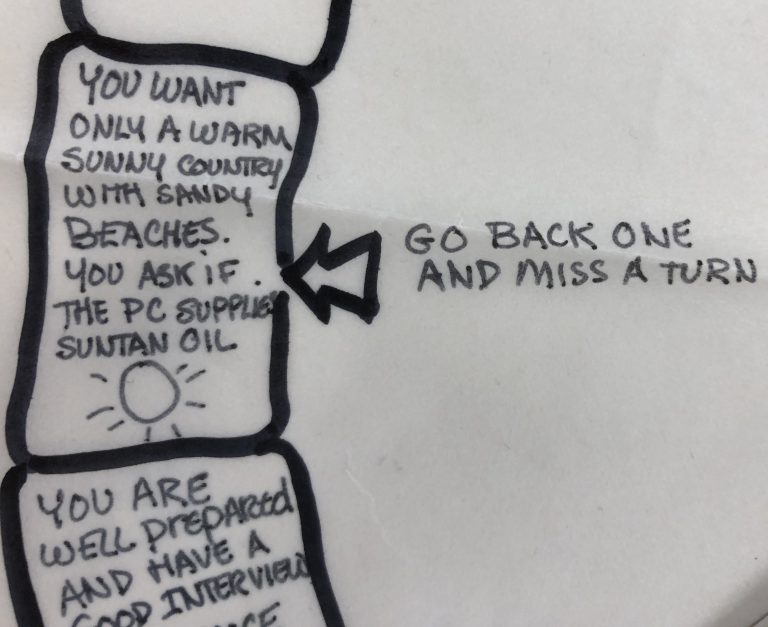 YOU WANT
ONLY A WARM
SUNNY COUNTRY
WITH SANDY
BEACHES.
YOU ASK iF
THE PC SUPPLIES
SUNTAN OIL
GO BACK ONE
AND MISS A TURN
YOU ARE
WELL PrEPARED
AND HAVE A
GOOD INTERVIEW